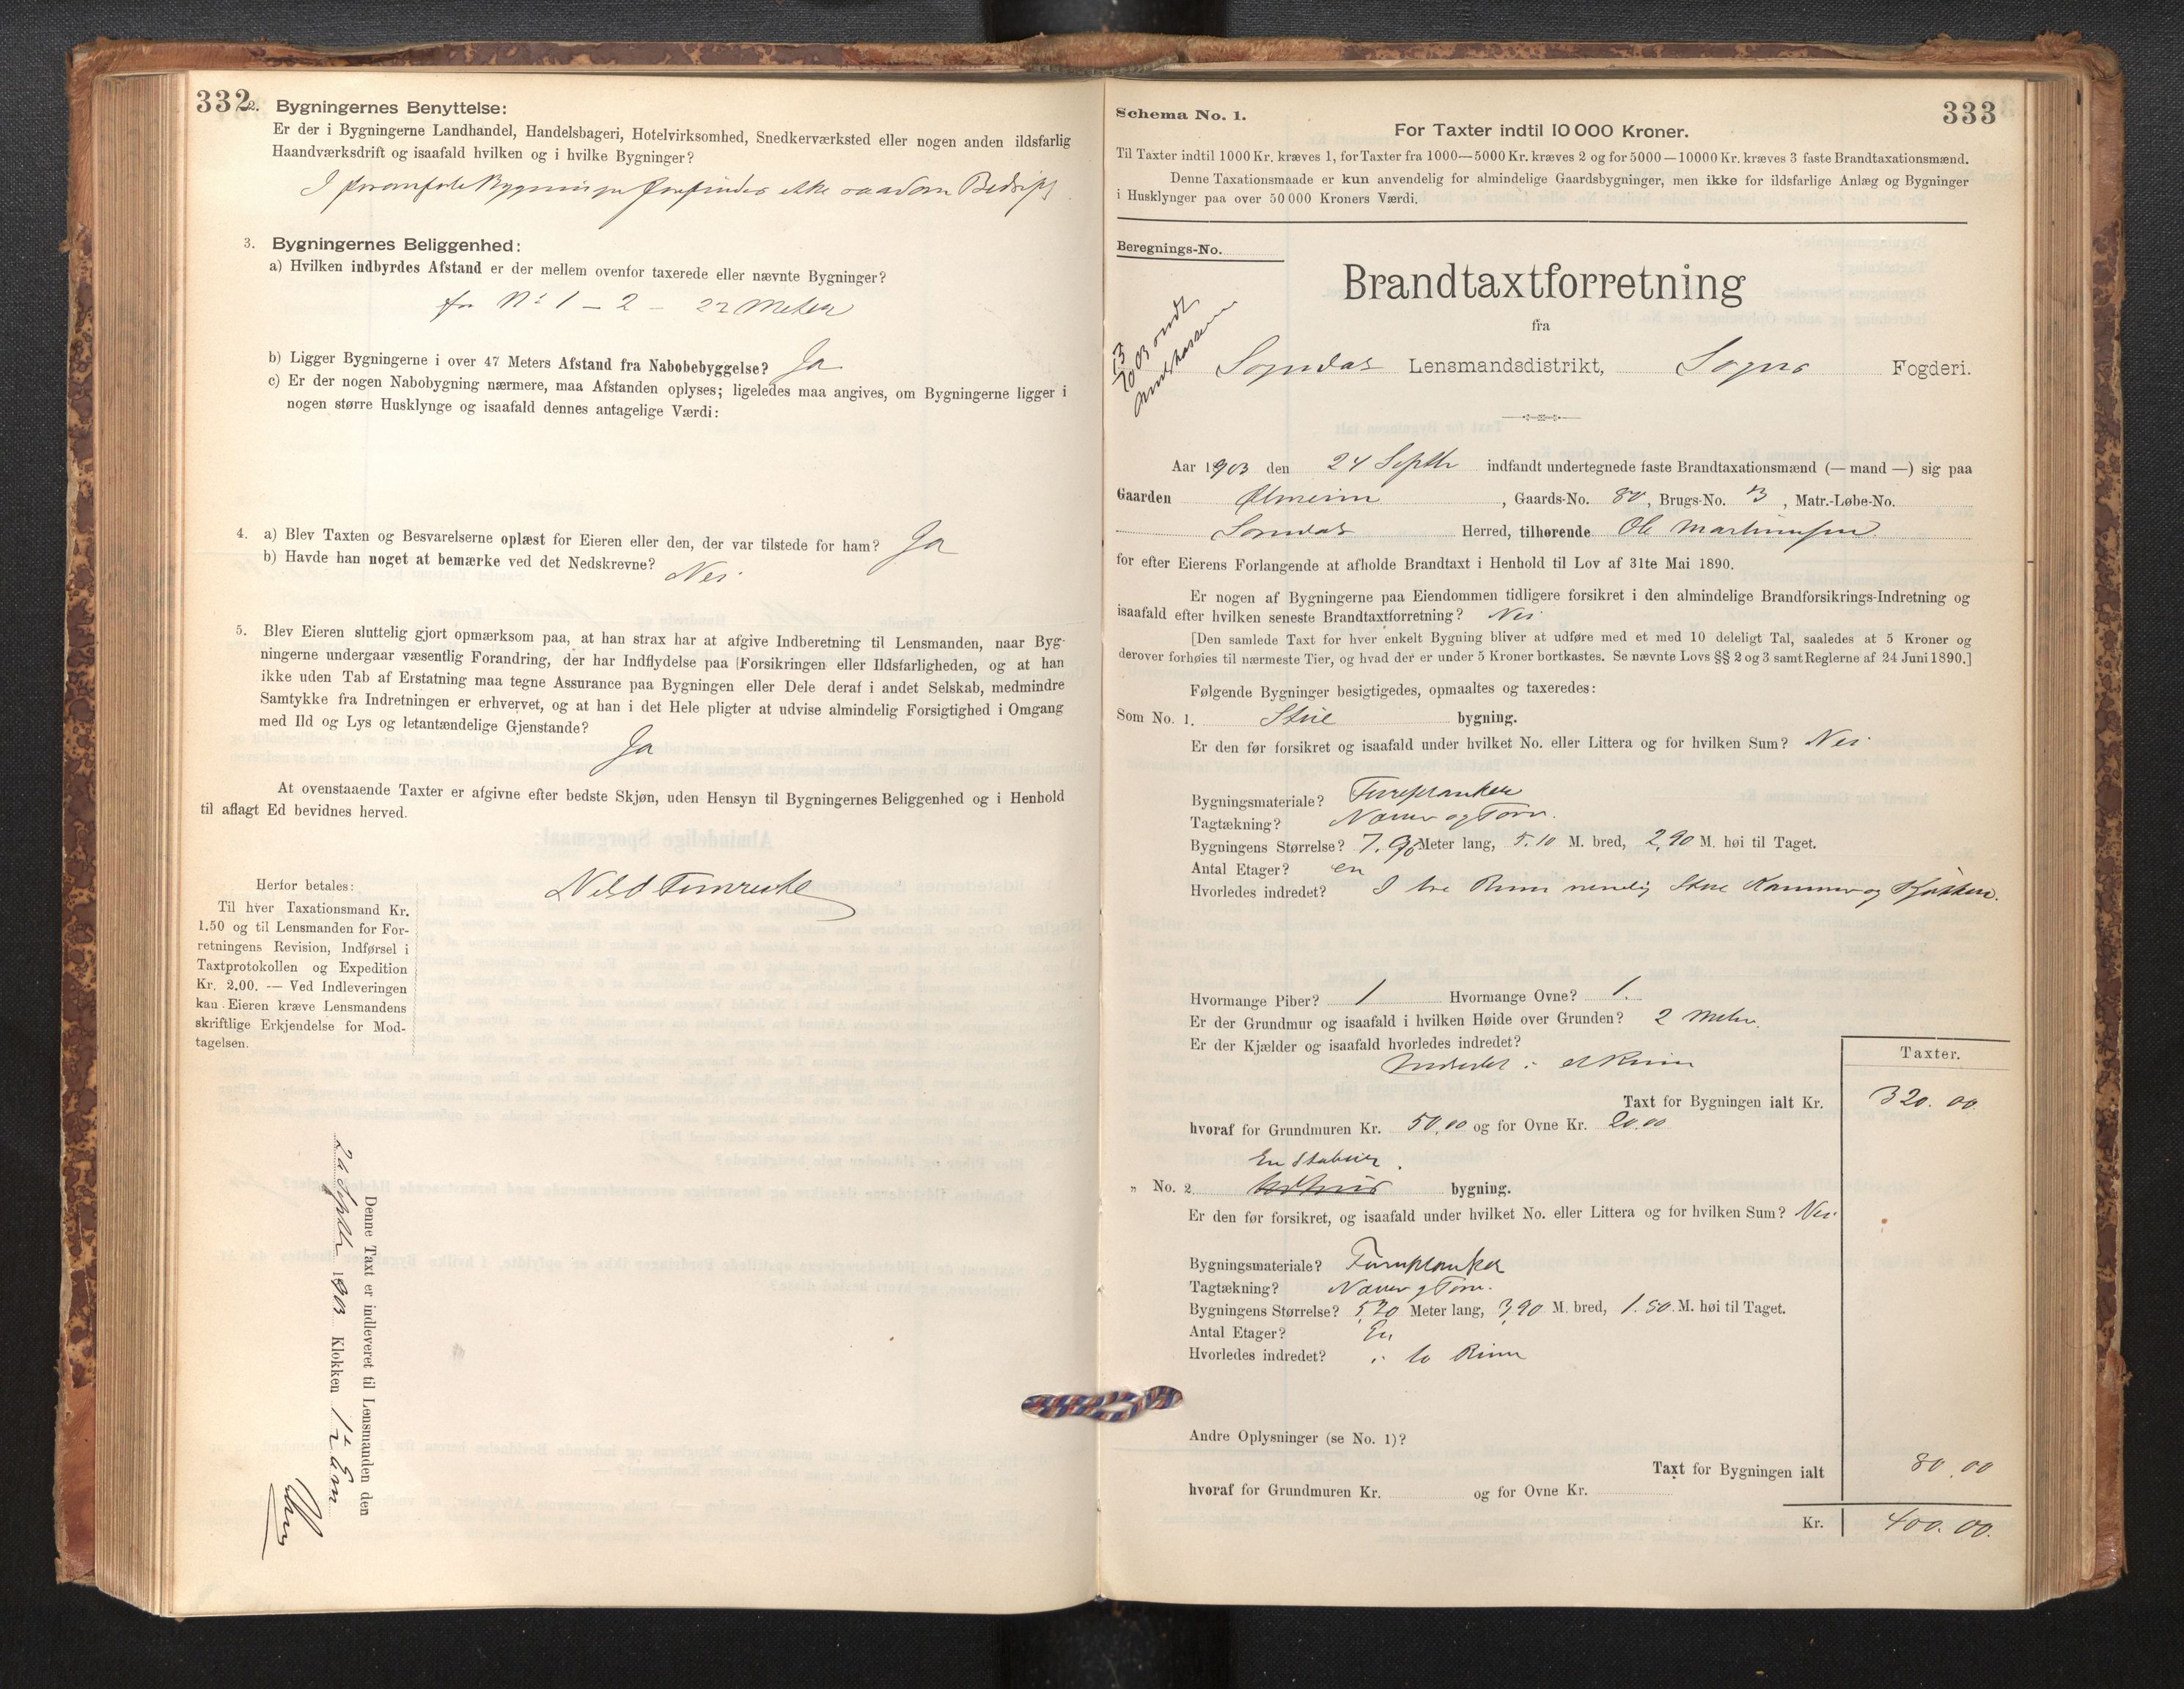 332
2. Bygningernes Benyttelse:
Er der i Bygningerne Landhandel, Handelsbageri, Hotelvirksomhed, Snedkerværksted eller nogen anden ildsfarlig
Haandværksdrift og isaafald hvilken og i hvilke Bygninger?
I foranførte Bygninger forefindes ikke saadan Bedrift
3. Bygningernes Beliggenhed:
a) Hvilken indbyrdes Afstand er der mellem ovenfor taxerede eller nævnte Bygninger?
fra No 1 – 2 – 22 Meter
b) Ligger Bygningerne i over 47 Meters Afstand fra Nabobebyggelse? Ja
c) Er der nogen Nabobygning nærmere, maa Afstanden oplyses; ligeledes maa angives, om Bygningerne ligger i
nogen større Husklynge og isaafald dennes antagelige Værdi:
4. a) Blev Taxten og Besvarelserne oplæst for Eieren eller den, der var tilstede for ham? Ja
b) Havde han noget at bemærke ved det Nedskrevne? Nei
5. Blev Eieren sluttelig gjort opmærksom paa, at han strax har at afgive Indberetning til Lensmanden, naar Byg-
ningerne undergaar væsentlig Forandring, der har Indflydelse paa Forsikringen eller Ildsfarligheden, og at han
ikke uden Tab af Erstatning maa tegne Assurance paa Bygningen eller Dele deraf i andet Selskab, medmindre
Samtykke fra Indretningen er erhvervet, og at han i det Hele pligter at udvise almindelig Forsigtighed i Omgang
med Ild og Lys og letantændelige Gjenstande?
Ja
At ovenstaaende Taxter er afgivne efter bedste Skjøn, uden Hensyn til Bygningernes Beliggenhed og i Henhold
til aflagt Ed bevidnes herved.
Herfor betales:
Til hver Taxationsmand Kr.
1.50 og til Lensmanden for For-
retningens Revision, Indførsel i
Taxtprotokollen og Expedition
Kr. 2.00. — Ved Indleveringen
kan Eieren kræve Lensmandens
skriftlige Erkjendelse for Mod-
tagelsen.
Denne Taxt er indleveret til Lensmanden den
Septbr 1903 Klokken
333
Schema No. 1.
For Taxter indtil 10 000 Kroner.
Til Taxter indtil 1000 Kr. kræves 1, for Taxter fra 1000—5000 Kr. kræves 2 og for 5000—10000 Kr. kræves 3 faste Brandtaxationsmænd.
Denne Taxationsmaade er kun anvendelig for almindelige Gaardsbygninger, men ikke for ildsfarlige Anlæg og Bygninger
i Husklynger paa over 50 000 Kroners Værdi.
Beregnings-No.
Brandtaxtforretning
fra
Sogndal Lensmandsdistrikt, Sogns Fogderi.
Aar 1903 den 24 Septbr indfandt undertegnede faste Brandtaxationsmænd (— mand —) sig paa
Gaarden Ølmeim, Gaards-No. 80, Brugs-No. 3, Matr.-Løbe-No.
Sogndal Herred, tilhørende Ole Martinusen
for efter Eierens Forlangende at afholde Brandtaxt i Henhold til Lov af 31te Mai 1890.
Er nogen af Bygningerne paa Eiendommen tidligere forsikret i den almindelige Brandforsikrings-Indretning og
isaafald efter hvilken seneste Brandtaxtforretning? Nei
[Den samlede Taxt for hver enkelt Bygning bliver at udføre med et med 10 deleligt Tal, saaledes at 5 Kroner og
derover forhøies til nærmeste Tier, og hvad der er under 5 Kroner bortkastes. Se nævnte Lovs §§ 2 og 3 samt Reglerne af 24 Juni 1890.]
Følgende Bygninger besigtigedes, opmaaltes og taxeredes:
Som No. 1. Stue bygning.
Er den før forsikret og isaafald under hvilket No. eller Littera og for hvilken Sum? Nei
Bygningsmateriale? Fureplanker
Tagtækning? Næver og Torv.
Bygningens Størrelse? 7.90 Meter lang, 5.10 M. bred, 2,90 M. høi til Taget.
Antal Etager? en
Hvorledes indredet? I tre Rum nemlig Stue Kammer og Kjøkken.
Hvormange Piber? 1 Hvormange Ovne? 1.
Er der Grundmur og isaafald i hvilken Høide over Grunden? 2 Meter.
Er der Kjælder og isaafald hvorledes indredet?
Indredet i et Rum
Taxter.
Taxt for Bygningen ialt Kr. 320.00
hvoraf for Grundmuren Kr. 50,00 og for Ovne Kr. 20.00
En Stabur
„ No. 2. bygning.
Er den før forsikret, og isaafald under hvilket No. eller Littera og for hvilken Sum? Nei
Bygningsmateriale? Furuplanker
Tagtækning? Næver og Torv.
Bygningens Størrelse? 5,70 Meter lang, 3,90 M. bred, 1.50 M. høi til Taget.
Antal Etager? En
Hvorledes indredet? i to Rum
Andre Oplysninger (se No. 1)?
Taxt for Bygningen ialt 80.00
hvoraf for Grundmuren Kr. og for Ovne Kr.
Kr. 400.00.